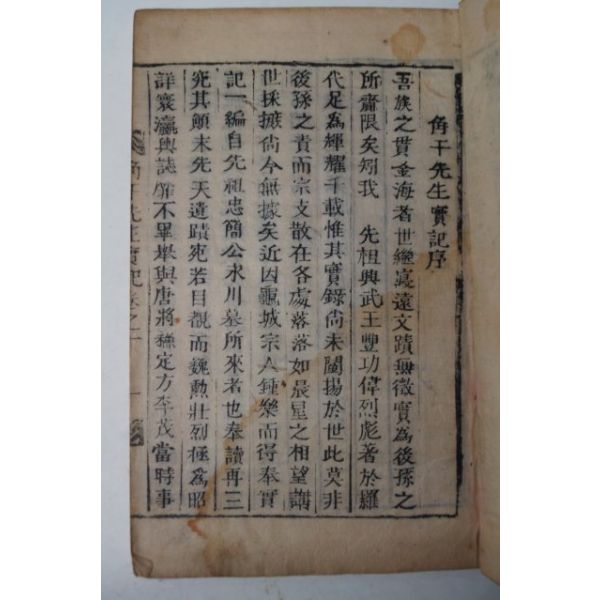 角干先生實記序
吾族之貫金海者世繼寔遠文蹟無徵實爲後孫之
所齎限矣矧我 先祖興武王豐功偉烈彪著於羅
代足爲輝耀千載惟其實錄尙未闡揚於世此莫非
後孫之責而宗支散在各處落落如晨星之相望講
世採摭尙今無據矣近因龜城宗人鍾樂而得奉實
記一編自先祖忠簡公永川墓所來者也奉讀再三
究其顚末先天遺蹟宛若目覩而巍勲壯烈極爲昭
詳寰瀛輿誌靡不畢擧與唐將蘇定方李茂當時事
角干先生實記卷之一